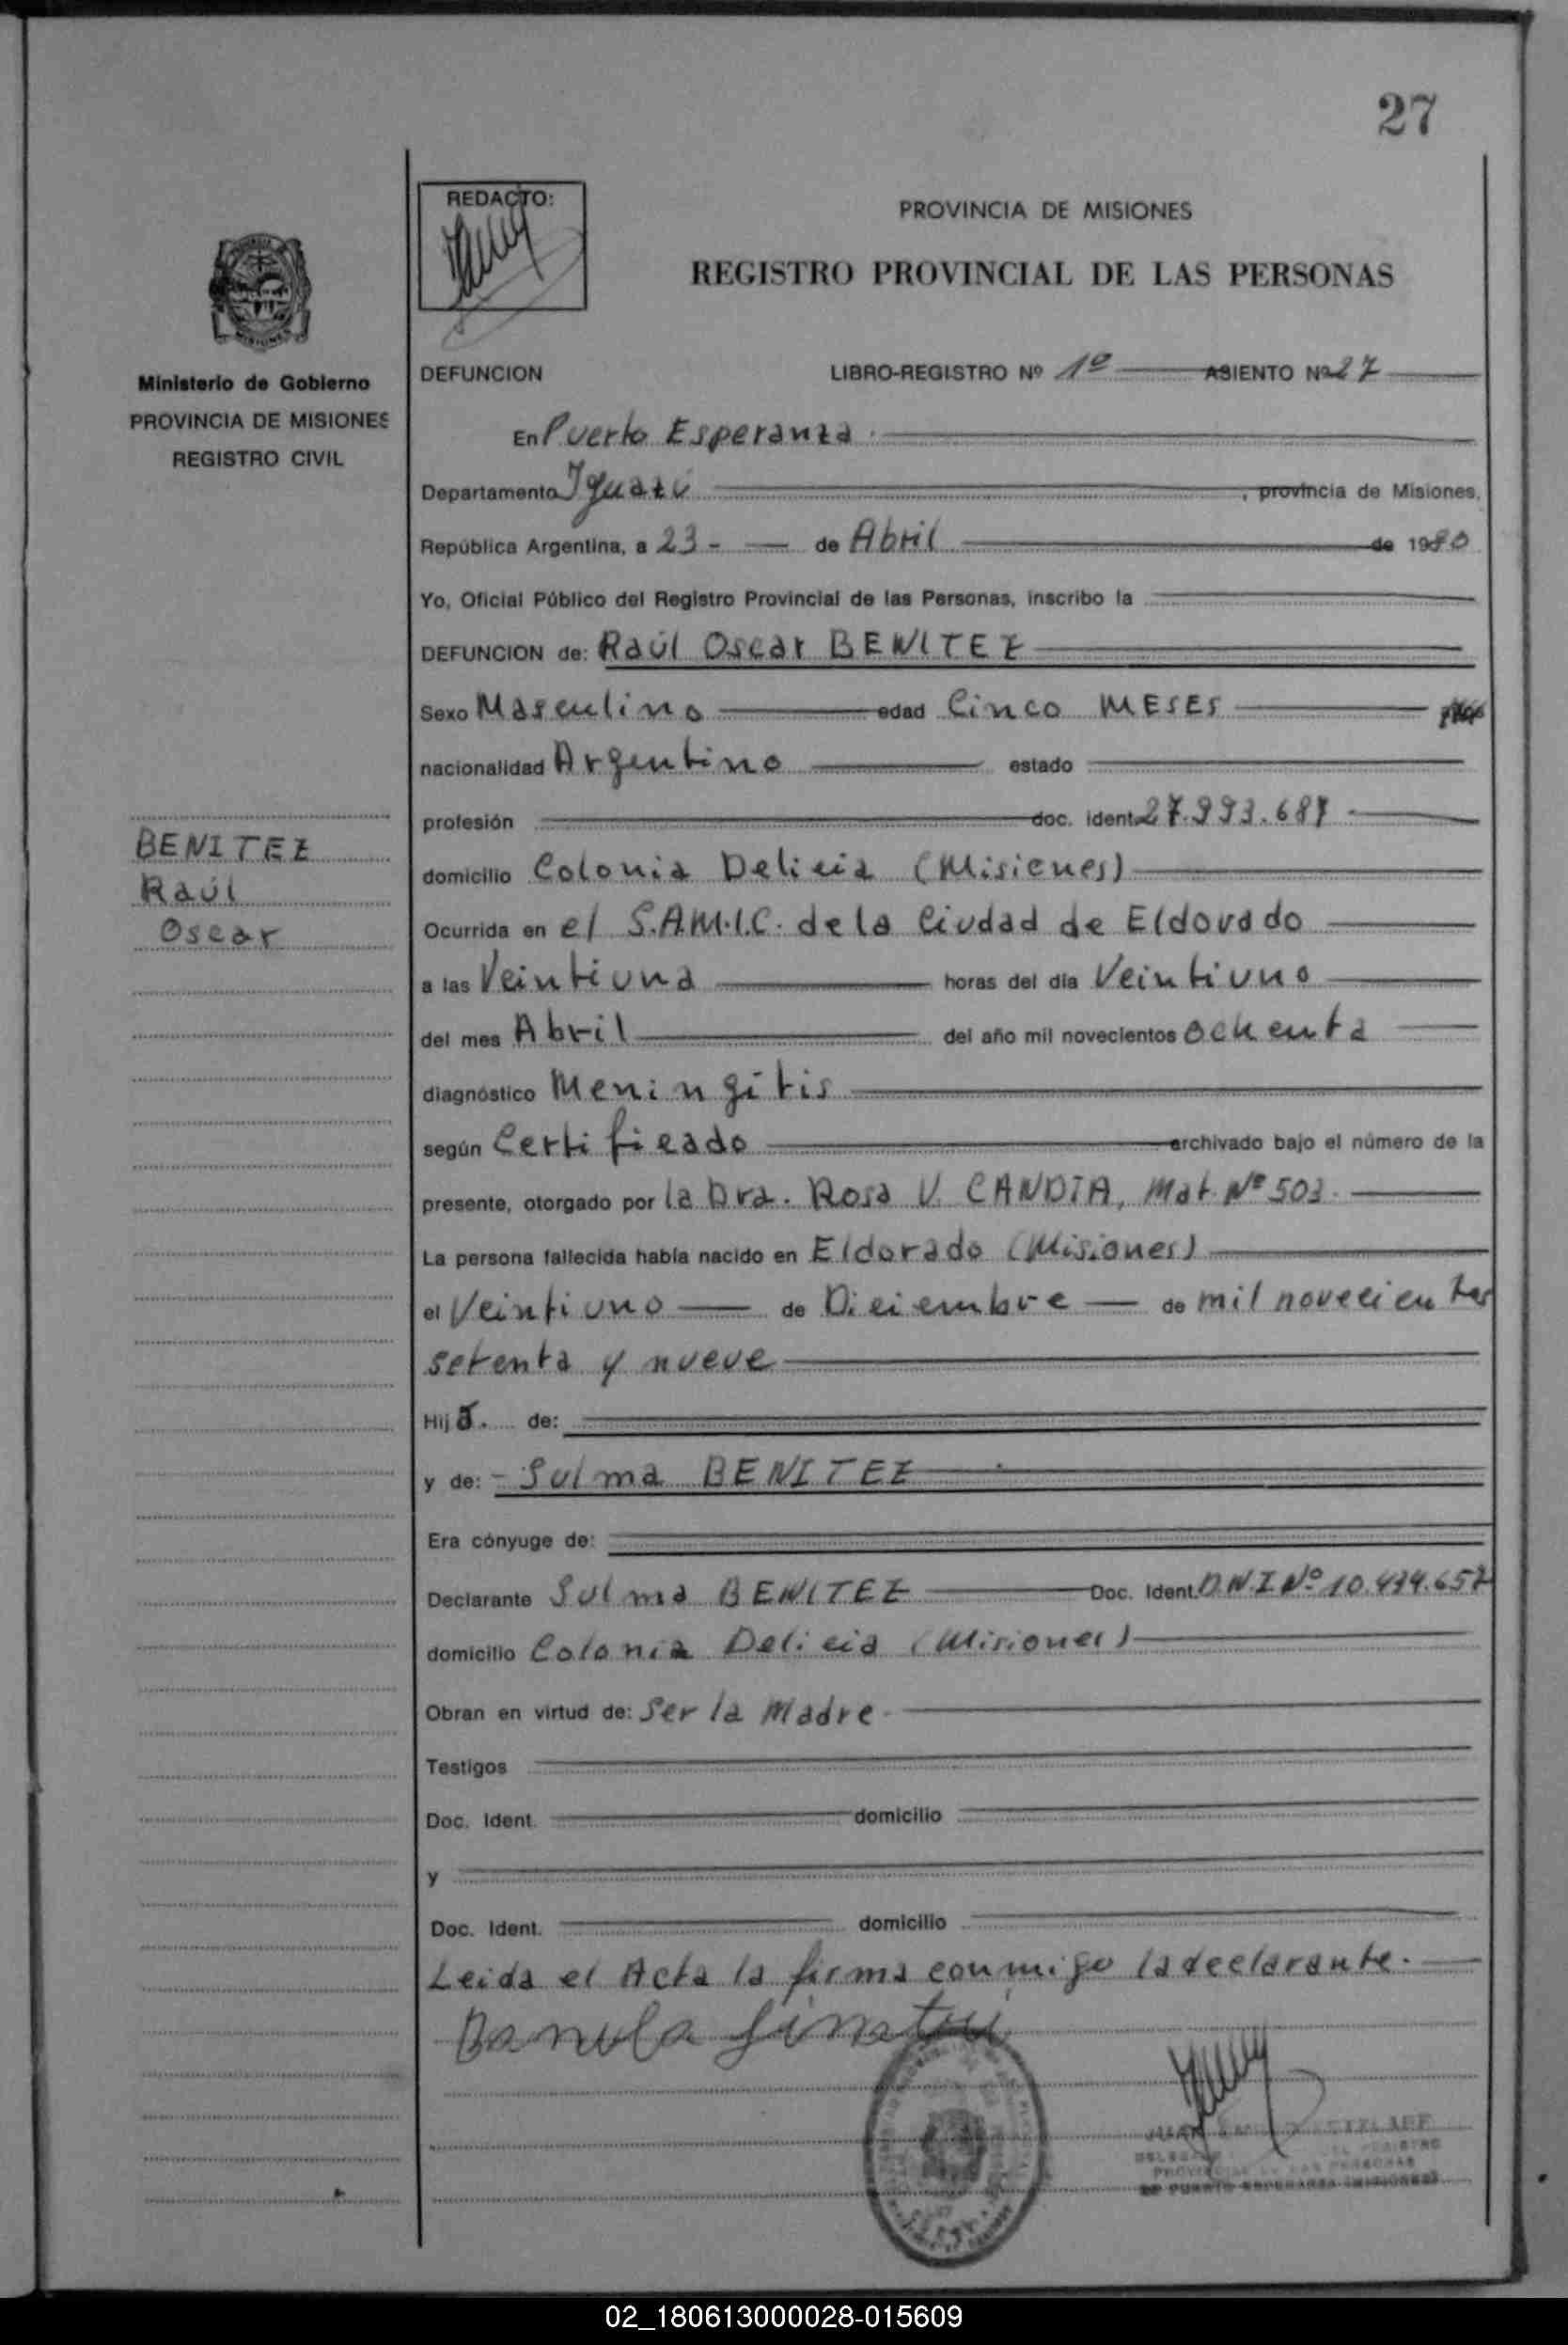 27
REDACTO:
PROVINCIA DE MISIONES
REGISTRO PROVINCIAL DE LAS PERSONAS
Ministerio de Gobierno
PROVINCIA DE MISIONES
REGISTRO CIVIL
DEFUNCION LIBRO-REGISTRO Nº 1º ASIENTO Nº 27
En Puerto Esperanza.
Departamento Iguazú, provincia de Misiones,
República Argentina, a 23 - de Abril de 1980
Yo, Oficial Público del Registro Provincial de las Personas, inscribo la
DEFUNCION de: Raúl Oscar BENITEZ
Sexo Masculino edad Cinco MESES
nacionalidad Argentino estado
profesión doc. ident. 27.993.687
BENITEZ
Raúl
Oscar
domicilio Colonia Delicia (Misiones)
Ocurrida en el S.A.M.I.C. de la Ciudad de Eldorado
a las Veintiuna horas del día Veintiuno
del mes Abril del año mil novecientos ochenta
diagnóstico Meningitis
según Certificado archivado bajo el número de la
presente, otorgado por la Dra. Rosa V. CANDIA, Mat. Nº 503.
La persona fallecida había nacido en Eldorado (Misiones)
el Veintiuno de Diciembre de mil novecientos
setenta y nueve
Hij o. de:
y de: - Sulma BENITEZ
Era cónyuge de:
Declarante Sulma BENITEZ Doc. Ident. D.N.I Nº 10.474.657
domicilio Colonia Delicia (Misiones)
Obran en virtud de: Ser la Madre.
Testigos
Doc. Ident. domicilio
y
Doc. Ident. domicilio
Leida el Acta la firma conmigo la declarante.
PUERTO ESPERANZA (MISIONES)
02_180613000028-015609